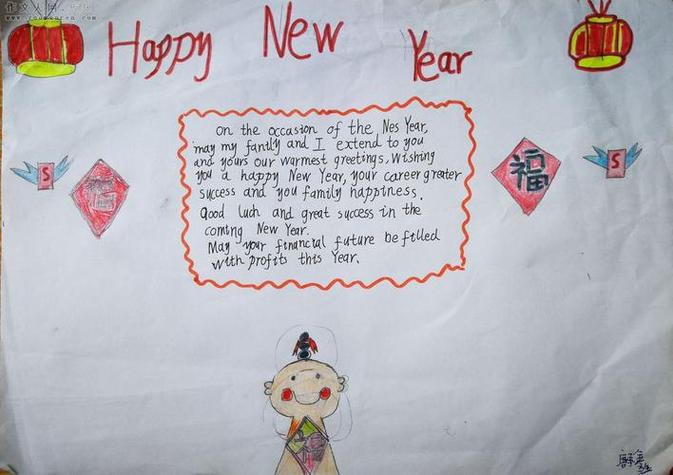 Happy New Year
On the occasion of the Nes Year,
may my family and I extend to you
and yours our warmest greetings, wishing
you a happy New Year, your career greater
success and you family happiness.
Good luch and great success in the
coming New Year.
May your financial future be filled
with profits this Year.
S
福
福
S